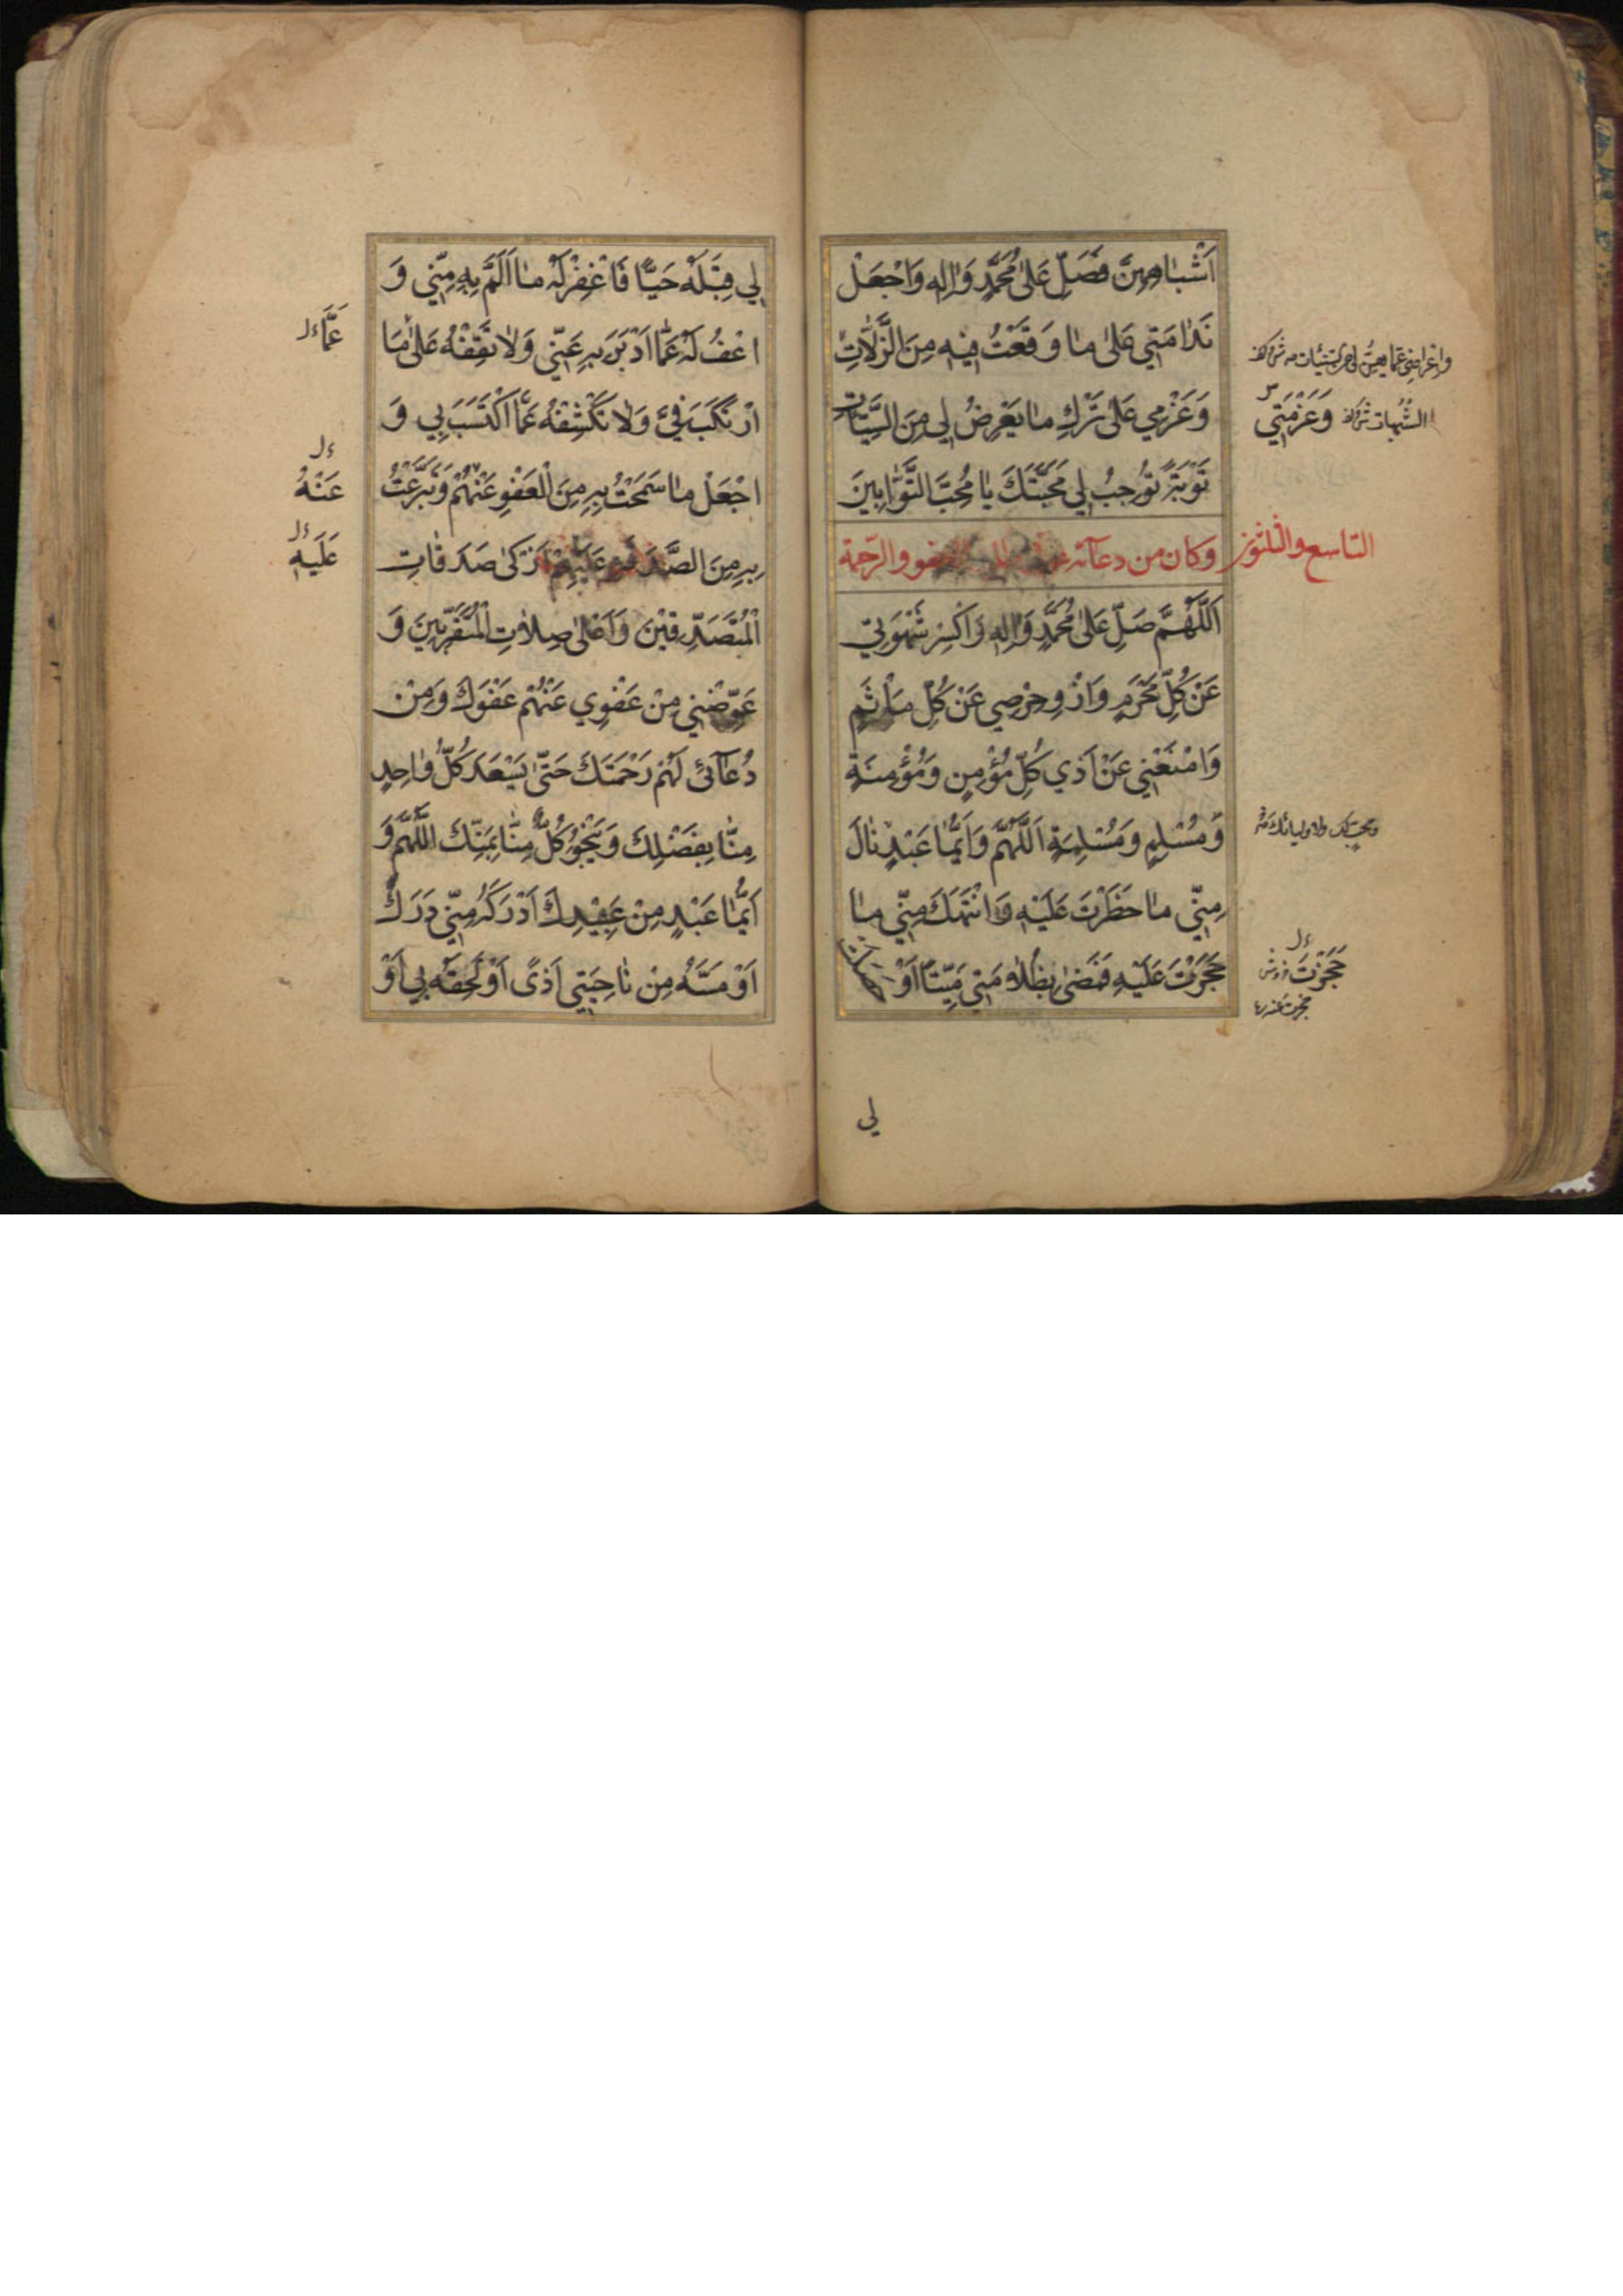 اَشْباهِهِنَّ فَصَلِّ عَلىٰ مُحَمَّدٍ وَاٰلِهِ وَاجْعَلْ
نَدٰامَتِي عَلىٰ مٰا وَقَعْتُ فِيْهِ مِنَ الزَّلّٰاتِ
وَعَزْمِي عَلىٰ تَرْكِ مٰا يَعْرِضُ لِي مِنَ السَّيِّئاتِ
تَوْبَةً تُوْجِبُ لِي مَحَبَّتَكَ يٰا مُحِبَّ التَّوّٰابِينَ
وكان من دعآئه العفو والرّحمة
اَللّٰهُمَّ صَلِّ عَلىٰ مُحَمَّدٍ وَاٰلِهِ وَاكْسِرْ شَهْوَتِي
عَنْ كُلِّ مَحْرَمٍ وَازْوِ حِرْصِي عَنْ كُلِّ مَأْثَمٍ
وَامْنَعْنِي عَنْ اَذٰي كُلِّ مُؤْمِنٍ وَمُؤْمِنَةٍ
وَمُسْلِمٍ وَمُسْلِمَةٍ اَللّٰهُمَّ وَاَيُّمٰا عَبْدٍ نٰالَ
مِنِّي مٰا حَظَرْتَ عَلَيْهِ وَانْتَهَكَ مِنِّي مٰا
حَجَرْتَ عَلَيْهِ فَمَضىٰ بِظُلٰامَتِي مَيِّتًا اَوْ حَصَلَتْ
لي
التاسع والثلثون
وَعَزْمَتِي
حَجَزْتَ
لِي قِبَلَهُ حَيًّا فَاغْفِرْ لَهُ مٰا اَلَمَّ بِهِ مِنِّي وَ
اعْفُ لَهُ عَمّٰا اَدْبَرَ بِهِ عَنِّي وَلٰا تَقِفْهُ عَلىٰ مَا
ارْتَكَبَ فِيَّ وَلٰا تَكْشِفْهُ عَمَّا اكْتَسَبَ بِي وَ
اجْعَلْ مٰا سَمَحْتُ بِهِ مِنَ الْعَفْوِ عَنْهُمْ وَتَبَرَّعْتُ
بِهِ مِنَ الصَّدَقَةِ عَلَيْهِمْ اَزْكىٰ صَدَقٰاتِ
الْمُتَصَدِّقِيْنَ وَاَعْلىٰ صِلٰاتِ الْمُتَقَرِّبِينَ وَ
عَوِّضْنِي مِنْ عَفْوِي عَنْهُمْ عَفْوَكَ وَمِنْ
دُعٰآئِي لَهُمْ رَحْمَتَكَ حَتّٰى يَسْعَدَ كُلُّ وٰاحِدٍ
مِنّٰا بِفَضْلِكَ وَيَنْجُوَ كُلٌّ مِنّٰا بِمَنِّكَ اَللّٰهُمَّ وَ
اَيُّمٰا عَبْدٍ مِنْ عَبِيْدِكَ اَدْرَكَهُ مِنِّي دَرَكٌ
اَوْ مَسَّهُ مِنْ نٰاحِيَتِي اَذًى اَوْ لَحِقَهُ بِي اَوْ
عَمَّا
عَنْهُ
عَلَيْهِ